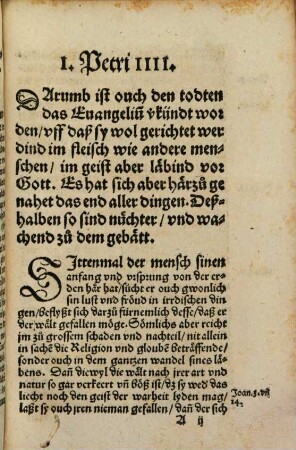 I. Petri IIII.
DArumb ist ouch den todten
das Euangeliũ v̇kündt wor
den/vff daß sy wol gerichtet wer
dind im fleisch wie andere men-
schen/ im geist aber läbind vor
Gott. Es hat sich aber härzů ge
nahet das end aller dingen. Deß-
halben so sind nüchter/ vnd wa-
chend zů dem gebätt.
SIttenmal der mensch sinen
anfang vnd vrsprung von der er-
den här hat/sůcht er ouch gwonlich
sin lust vnd fröud in irrdischen din
gen/beflyßt sich darzů fürnemlich desse/ daß er
der wält gefallen möge. Sömlichs aber reicht
jm zů grossem schaden vnd nachteil/ nit allein
in sachẽ die Religion vnd gloubẽ beträffende/
sonder ouch in dem gantzen wandel sines lä-
bens. Dañ diewyl die wält nach jrer art vnd
natur so gar verkeert vñ bößist/ dz sy wed das
liecht noch den geist der warheit lyden mag/
laßt sy ouch jren nieman gefallen/ dañ der sich
Joan.3.vñ
14.
A ij